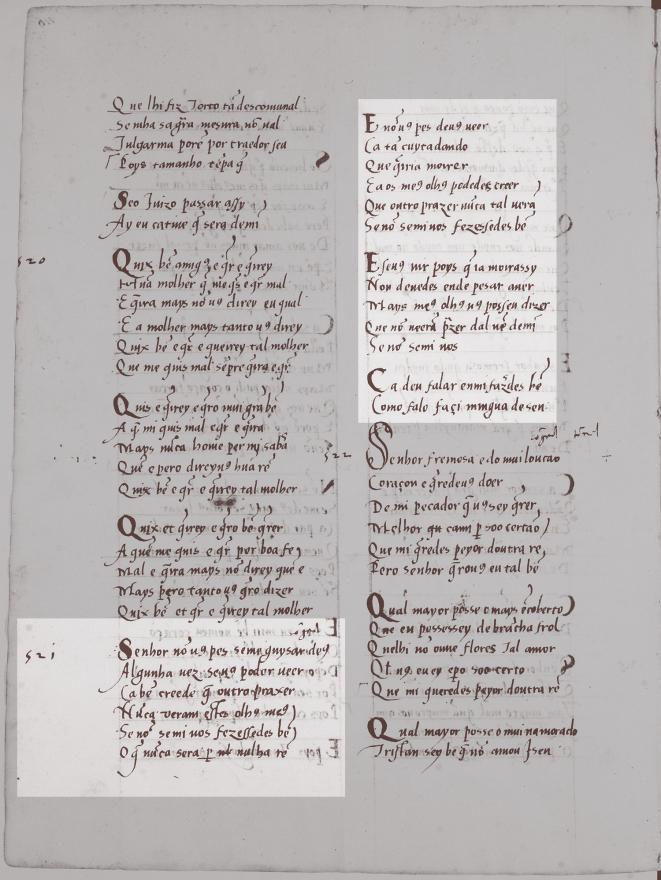 Que lhi fiz Torto tã descomunal
Se mha sa g̃ra mesura nõ ual
Julgarmã porẽ por traedor sea
Poys tamanho
Seo Juizo passar assy
Ay eu catiue q̃ sera demi
520
Quix bẽ amig9 e q̃r e q̃rey
hũa molher q̃ me q̃s e q̃r mal
E q̃rra mays nõ u9 direy eu qual
E a molher mays tanto u9 direy
Quix bẽ e q̃r e querrey tal molher
Que me quis mal sẽpre q̃rra e q̃r
Quis e q̃rrey e q̃ro mui grã bẽ
A q̃ mi quis mal e q̃r e q̃rra
Mays nũca home per mi saba
Que e pero direyu9 hua rẽ
Quix bẽ e q̃r e q̃rrey tal molher
Quix et q̃rrey e q̃ro bẽ q̃rer
A quẽ me quis e q̃r por boa fe
Mal e q̃rra mays nõ direy que e
Mays pero tanto u9 q̃ro dizer
Quix bẽ et q̃r e q̃rrey tal molher
521
Senhor nõ u9 pes se me guysar de9
Algunha uez seu9 poder ueer
Ca bẽ creede q̃ outro prazer
Nũca ueram estes olhos me9
Se nõ semi uos fezessedes bẽ
O q̃ nũca sera per nulha rẽ
E nõ u9 pes deu9 ueer
Ca tã cuytadando
Que q̃rria morrer
E aos me9 olh9 podedes creer
Que outro prazer nũca tal uera
Se nõ semi uos fezessedes bẽ
E seu9 uir poys q̃ ia moirassy
Non deuedes ende pesar auer
Mays me9 olh9 u9 posseu dizer
Que nõ ueerã p̃zer dal nẽ demi
Se nõ semi uos
Ca deu falar enmi fazedes bẽ
Como falo faci mingua de sen
522
Senhor fremosa e do mui loução
Coraçon e q̃redeu9 doer
De mi pecador q̃ u9 sey q̃rer
Melhor ca mi per soo certão
Que mi q̃redes peyor doutra rẽ
Pero senhor q̃rou9 eu tal bẽ
Qual mayor posse o mays ẽcoberto
Que eu possessey de brãcha frol
Quelhi nõ ouue flores Tal amor
Qual u9 eu ey epo soo certo
Que mi queredes peyor doutra rẽ
Qual mayor posse o mui namorado
Tristan sey bẽ q̃ nõ amou Jseu